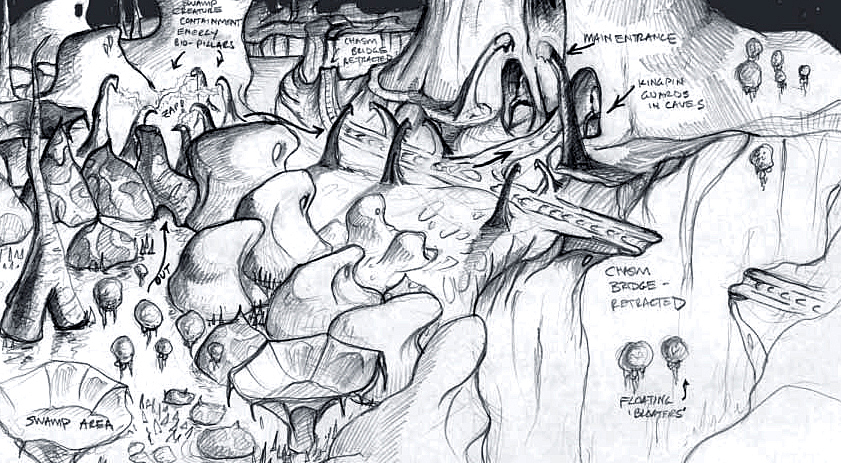 SWAMP
CREATURE
CONTAINMENT
ENERGY
BIO-PILLARS
CHASM
BRIDGE
RETRACTED
MAIN ENTRANCE
KINGPIN
GUARDS
IN CAVES
ZAP!
OUT
CHASM
BRIDGE-
RETRACTED
FLOATING
'BLOATERS'
SWAMP AREA